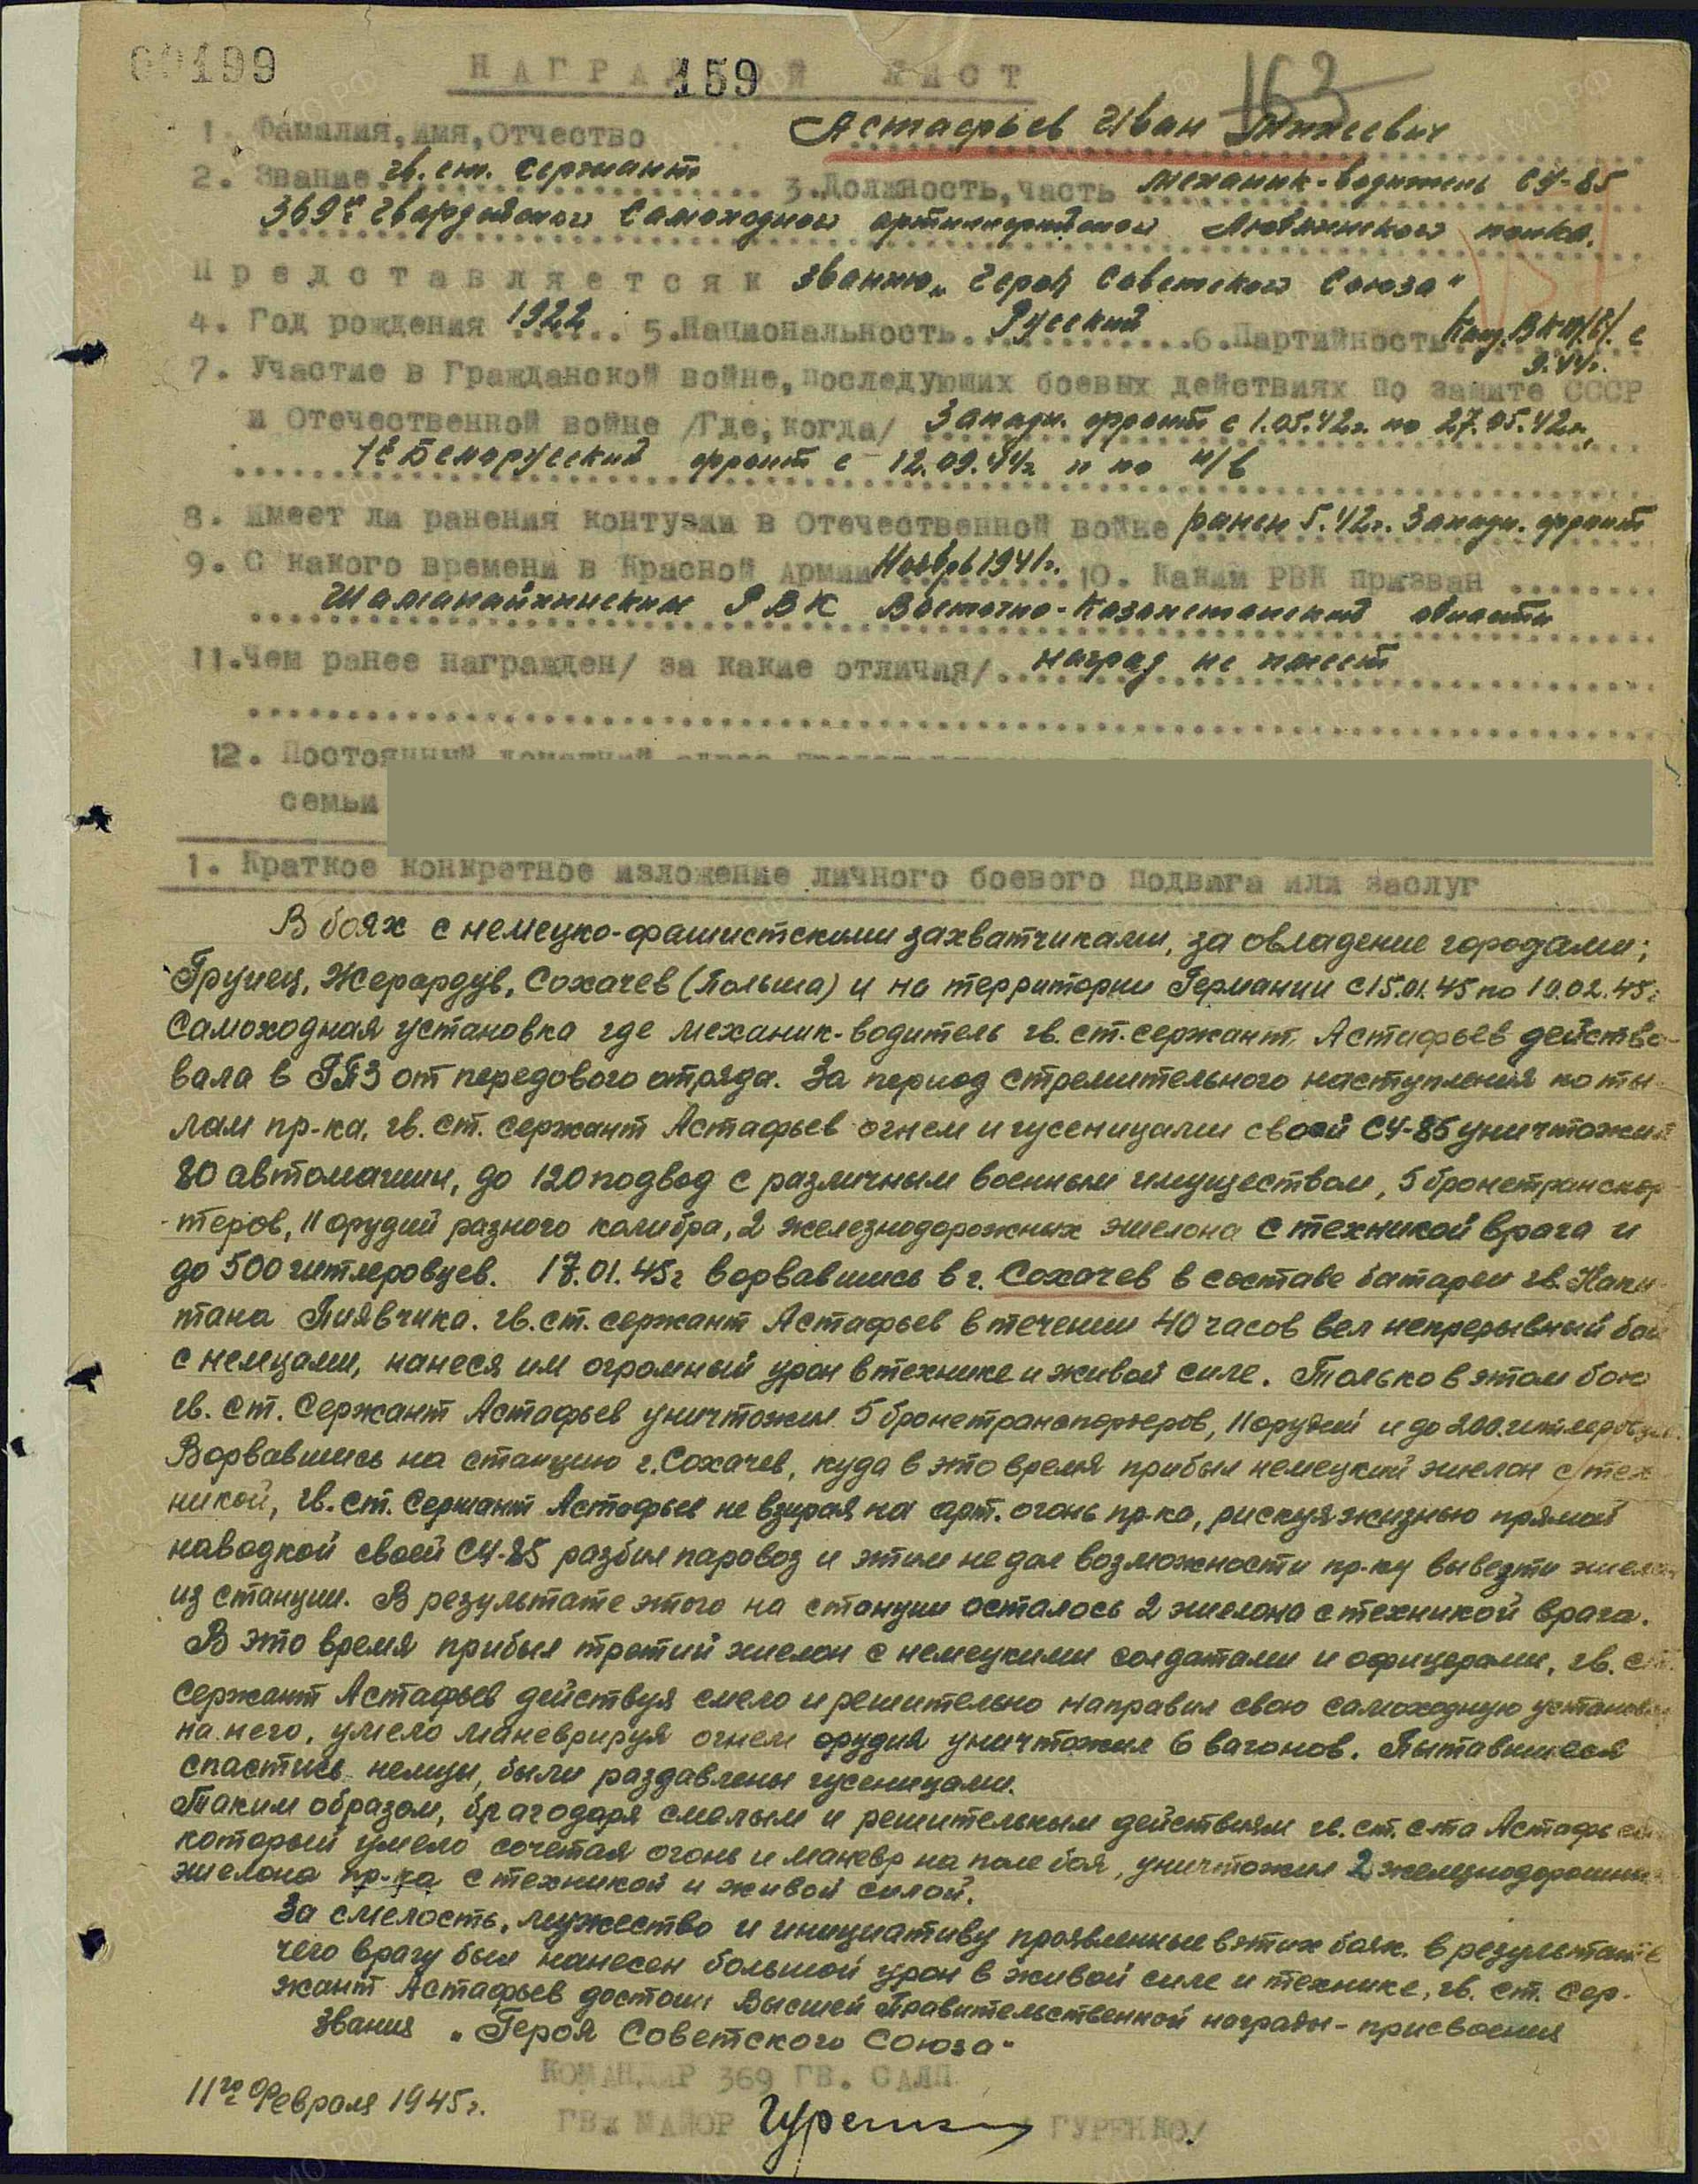 60199
НАГРАДНОЙ ЛИСТ
159
163
1. Фамилия, имя, Отчество Астафьев Иван
2. Звание гв. ст. сержант 3. Должность, часть механик-водитель СУ-85
369го Гвардейского Самоходного артиллерийского полка.
Представляется к званию „Герой Советского Союза"
4. Год рождения 1922 5. Национальность Русский 6. Партийность Канд. ВКП/б/. с
9.44г.
7. Участие в Гражданской войне, последующих боевых действиях по защите СССР
и Отечественной войне /Где, когда/ Западн. фронт с 1.05.42г. по 27.05.42г.,
1й Белорусский фронт с 12.09.44г. и по н/в
8. Имеет ли ранения контузии в Отечественной войне ранен 5.42г. Западн. фронт
9. С какого времени в Красной Армии Ноябрь 1941г. 10. Каким РВК призван
РВК Восточно-Казахстанской области
11. Чем ранее награжден/ за какие отличия/ наград не имеет
12. Постоянный домашний адрес
семьи
1. Краткое конкретное изложение личного боевого подвига или заслуг
В боях с немецко-фашистскими захватчиками, за овладение городами;
Груец, Жерардув, Сохачев (Польша) и на территории Германии с 15.01.45 по 10.02.45г
самоходная установка где механик-водитель гв. ст. сержант Астафьев действо-
вала в ГПЗ от передового отряда. За период стремительного наступления по ты-
лам пр-ка, гв. ст. сержант Астафьев огнем и гусеницами своей СУ-85 уничтожил
80 автомашин, до 120 подвод с различным военным имуществом, 5 бронетранспор-
теров, 11 орудий разного калибра, 2 железнодорожных эшелона с техникой врага и
до 500 гитлеровцев. 17.01.45г ворвавшись в г. Сохачев в составе батареи гв. Капи-
тана Пиявчика. гв. ст. сержант Астафьев в течении 40 часов вел непрерывный бой
с немцами, нанеся им огромный урон в технике и живой силе. Только в этом бою
гв. ст. Сержант Астафьев уничтожил 5 бронетранспортеров, 11 орудий и до 200 гитлеровцев.
Ворвавшись на станцию г. Сохачев, куда в это время прибыл немецкий эшелон с тех-
никой, гв. ст. Сержант Астафьев не взирая на арт. огонь пр-ка, рискуя жизнью прямой
наводкой своей СУ-85 разбил паровоз и этим не дал возможности пр-ку вывезти эшелон
из станции. В результате этого на станции осталось 2 эшелона с техникой врага.
В это время прибыл третий эшелон с немецкими солдатами и офицерами, гв. ст.
сержант Астафьев действуя смело и решительно направил свою самоходную установку
на него, умело маневрируя огнем орудия уничтожил 6 вагонов. Пытавшиеся
спастись немцы, были раздавлены гусеницами.
Таким образом, благодаря смелым и решительным действиям гв. ст. с-та Астафьева
который умело сочетая огонь и маневр на поле боя, уничтожил 2 железнодорожных
эшелона пр-ка с техникой и живой силой.
За смелость, мужество и инициативу проявленные в этих боях. в результате
чего врагу был нанесен большой урон в живой силе и технике, гв. ст. сер-
жант Астафьев достоин Высшей Правительственной награды - присвоения
звания „Героя Советского Союза"
КОМАНДИР 369 ГВ. САЛП
11го Февраля 1945г.
ГВ. МАЙОР /ГУРЕНКО/